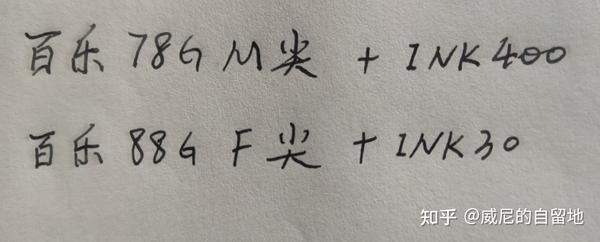 百乐 78G M尖 + INK400
百乐 88G F尖 + INK30
知乎 @威尼的自留地